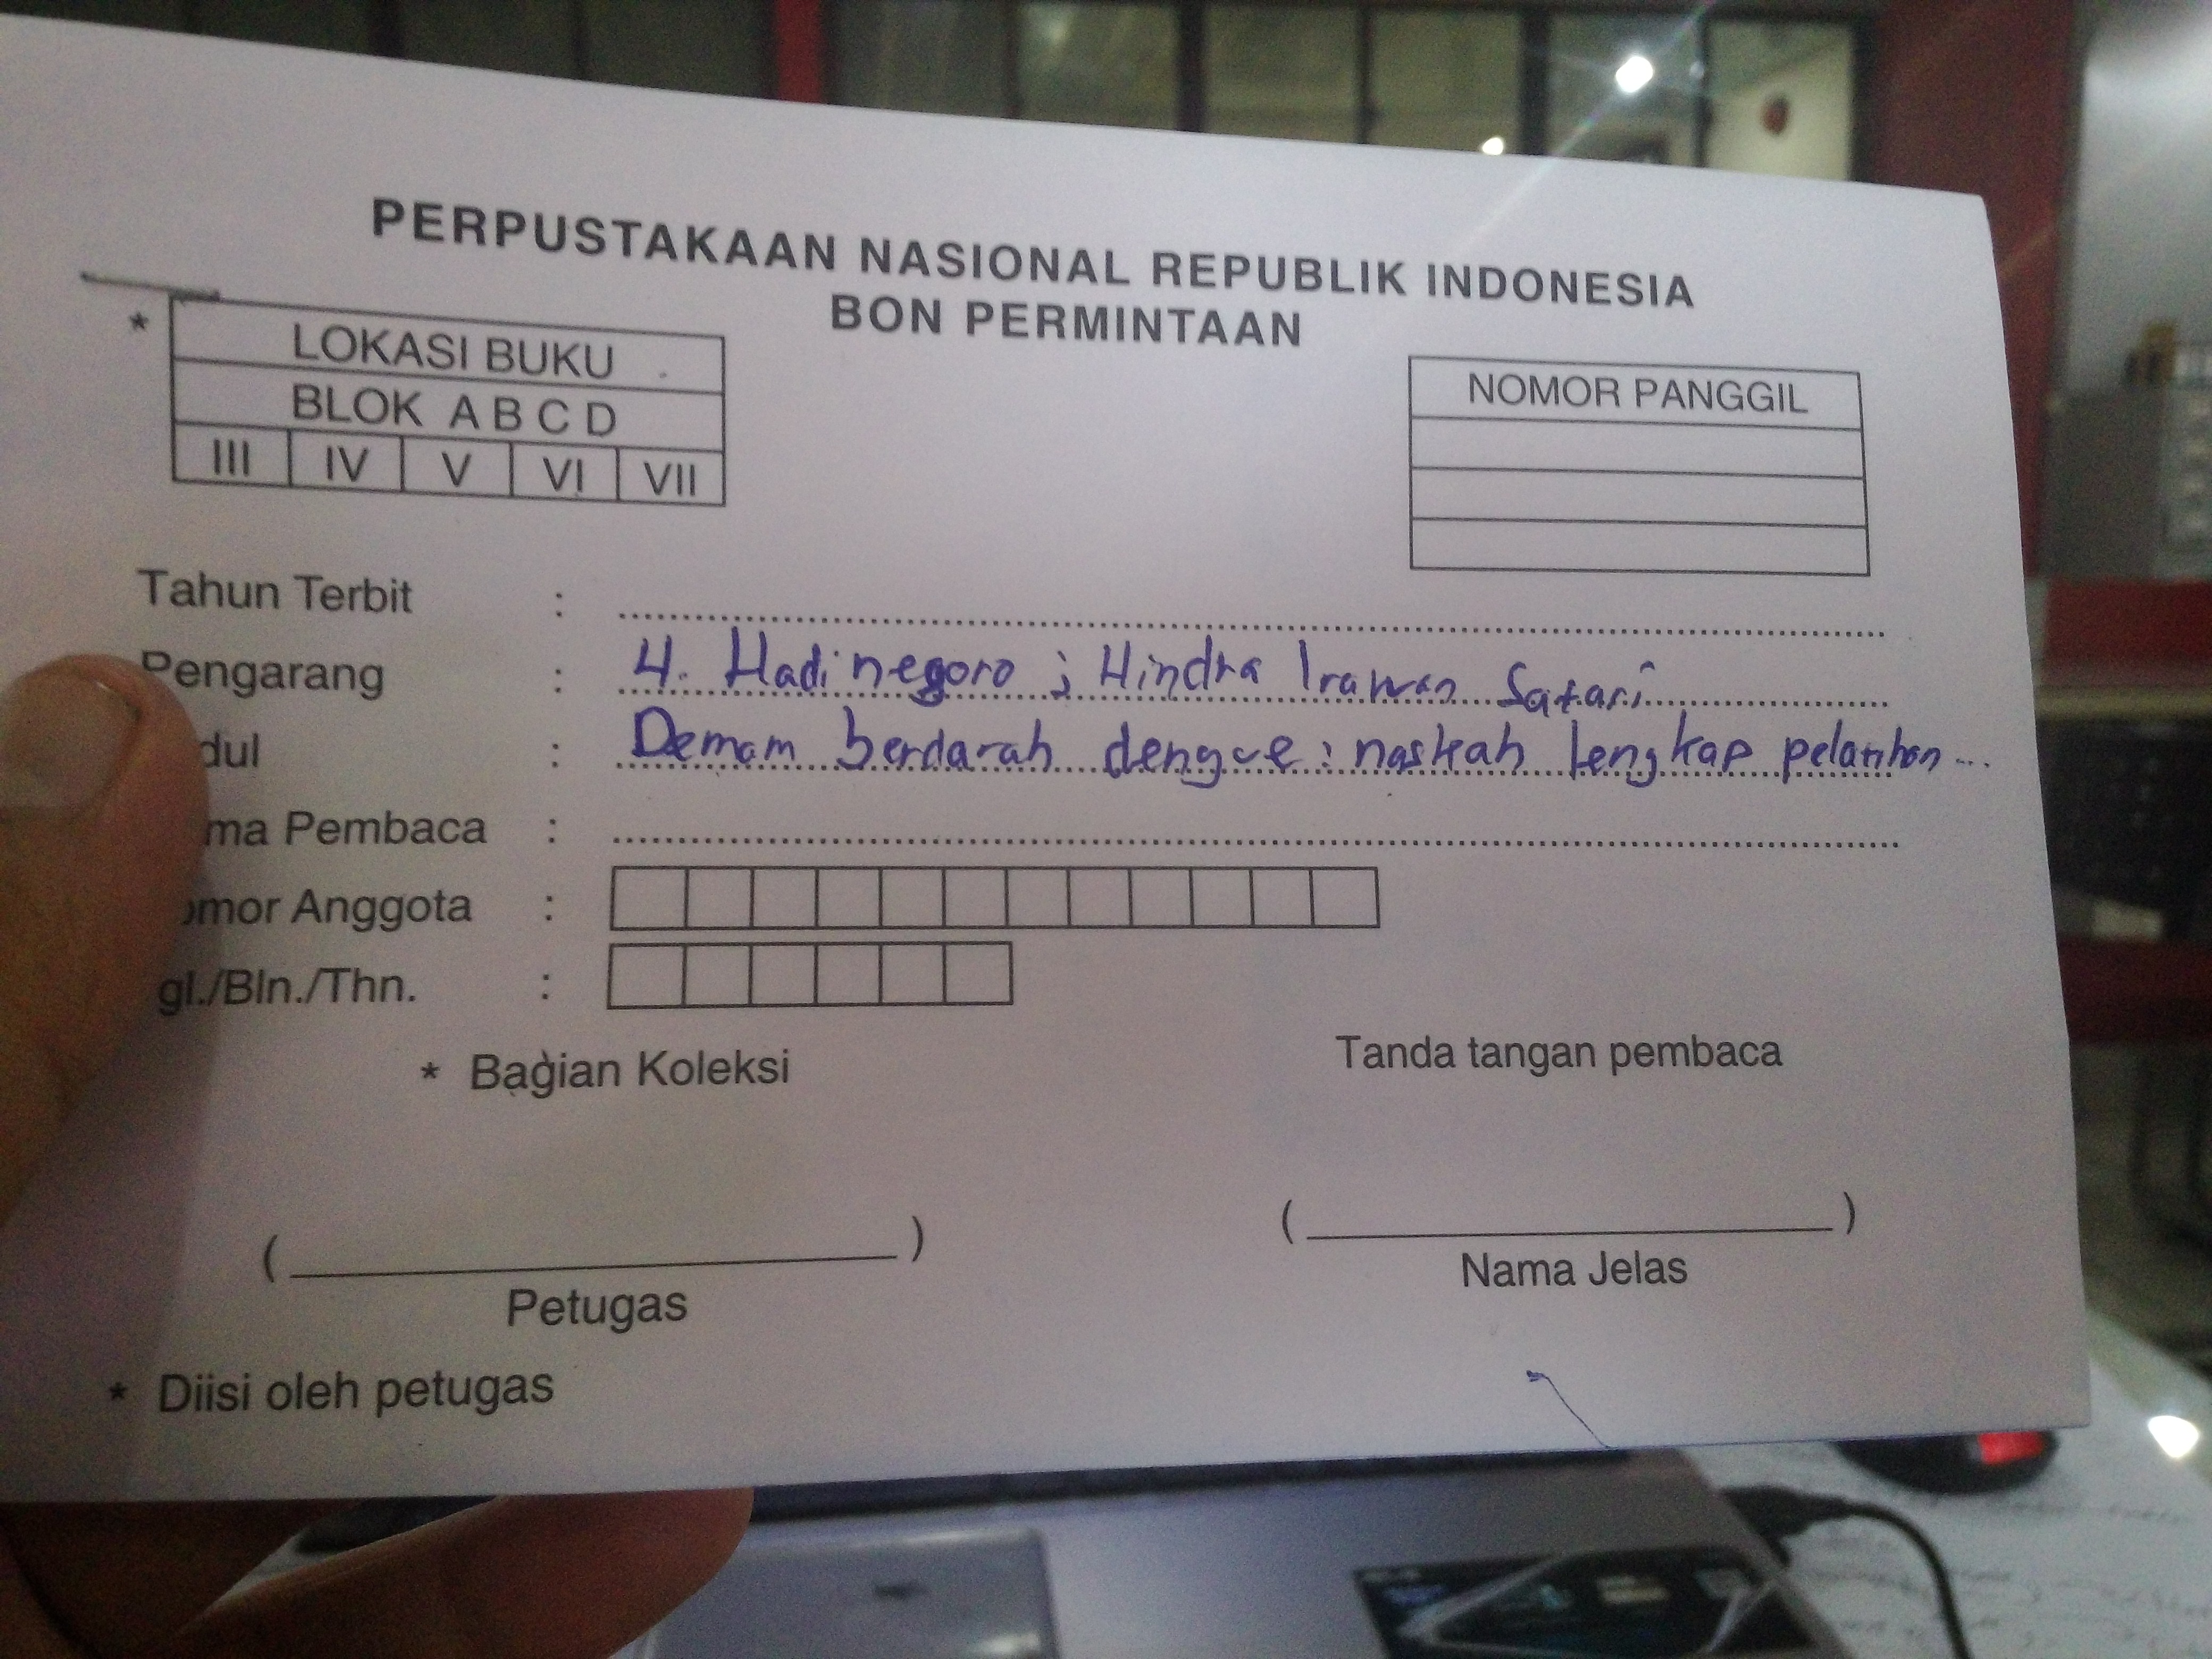 PERPUSTAKAAN NASIONAL REPUBLIK INDONESIA
BON PERMINTAAN
* LOKASI BUKU
BLOK A B C D
III IV V VI VII
NOMOR PANGGIL
Tahun Terbit :
Pengarang : H. Hadinegoro ; Hindra Irawan Satari
dul : Demam berdarah dengue : naskah lengkap pelatihan ...
ma Pembaca :
omor Anggota :
gl./Bln./Thn. :
* Bagian Koleksi
Tanda tangan pembaca
( ) ( )
Petugas
Nama Jelas
* Diisi oleh petugas